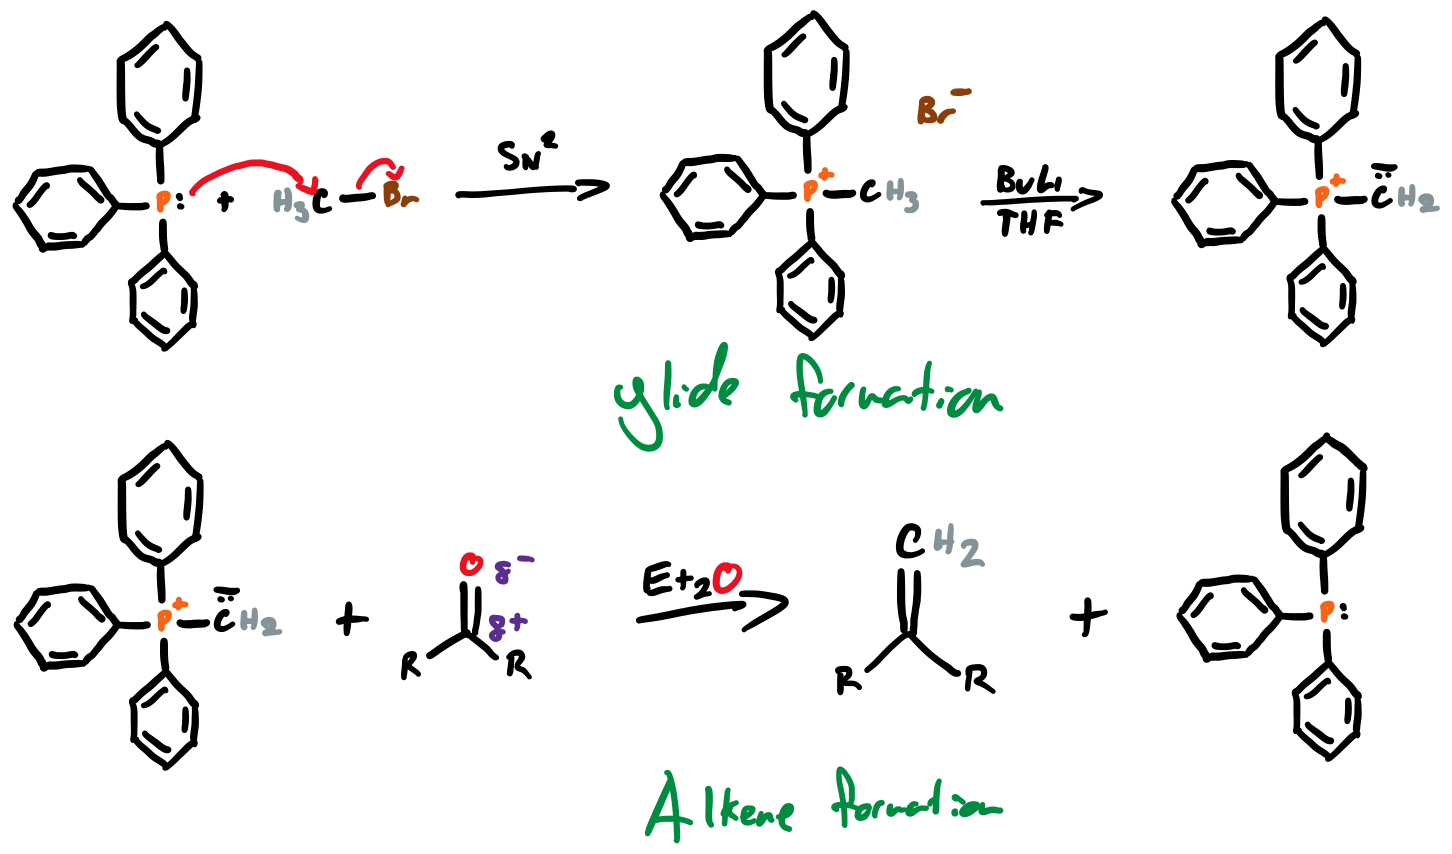 P: + H3C Br SN2 P+ CH3 Br- BuLi THF P+ C̄̈H2
ylide formation
P+ C̄̈H2 + O δ- δ+ R R Et2O CH2 R R + P:
Alkene formation